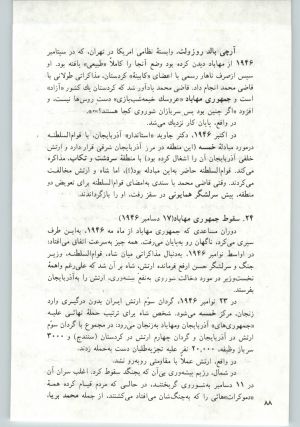 آرچی بالد روزولت، وابستهٔ نظامی امریکا در تهران، که در سپتامبر
۱۹۴۶ از مهاباد دیدن کرده بود وضع آنجا را کاملاً «طبیعی» یافته بود. او
سپس ازصرف ناهار رسمی با اعضای «کابینهٔ» کردستان، مذاکراتی طولانی با
قاضی محمد انجام داد. قاضی محمد به‌او یادآور شد که کردستان یك کشور «آزاد»
است و جمهوری مهاباد «عروسك خیمه‌شب‌بازی» دست روس‌ها نیست، و
افزود «اگر چنین بود پس سربازان شوروی کجا هستند؟»
در واقع، پایان کار نزدیك می‌شد.
در اکتبر ۱۹۴۶، دکتر جاوید «استاندار» آذربایجان، با قوام‌السلطنه
درمورد مبادلهٔ خمسه (این منطقه در مرز آذربایجان شرقی قرار دارد و ارتش
خلقی آذربایجان آن را اشغال کرده بود) با منطقهٔ سردشت و تکاب، مذاکره
می‌کند. قوام‌السلطنه حاضر به‌این مبادله بود(!)، اما شاه و ارتش مخالفت
می‌کردند. وقتی قاضی محمد با سندی به‌امضای قوام‌السلطنه برای تعویض دو
منطقه، پیش سرلشگر همایونی در سقز رفت، او را بازگرداندند.
۲۴. سقوط جمهوری مهاباد(۱۷ دسامبر ۱۹۴۶)
دوران مساعدی که جمهوری مهاباد از ماه مه ۱۹۴۶، به‌این طرف
سپری می‌کرد، ناگهان رو به‌پایان می‌رفت. همه چیز به‌سرعت اتفاق می‌افتاد:
در اواسط نوامبر ۱۹۴۶، به‌دنبال مذاکراتی میان شاه، قوام‌السلطنه، وزیر
جنگ و سرلشگر حسن ارفع فرمانده ارتش، شاه بر آن شد که علی‌رغم واهمهٔ
نخست‌وزیر در مورد دخالت سوروی به‌نفع پیشه‌وری، ارتش را به‌آذربایجان
بفرستد.
در ۲۳ نوامبر ۱۹۴۶، گردان سوّم ارتش ایران بدون درگیری وارد
زنجان، مرکز خمسه می‌شود. شاه شخص برای ترتیب حملهٔ نهائی علیه
«جمهوری‌های» آذربایجان ومهاباد به‌زنجان می‌رود؛ در مجموع با گردان سوم
ارتش در آذربایجان و گردان چهارم ارتش در کردستان (سنندج) و ۳۰۰۰
سرباز وظیفه، ۲۰،۰۰۰ نفر علیه تجزیه‌طلبان دست به‌حمله زدند.
در واقع، ارتش عملاً با مقاومتی روبه‌رو نشد.
در شمال، رژیم پیشه‌وری بی‌آن که بجنگد سقوط کرد. اغلب سران آن
در ۱۱ دسامبر به‌شوروی گریختند، در حالی که مردم قیام کرده همهٔ
«دموکرات»هائی را که به‌چنگ‌شان می‌افتاد می‌کشتند، از جمله محمد بریا،
۸۸